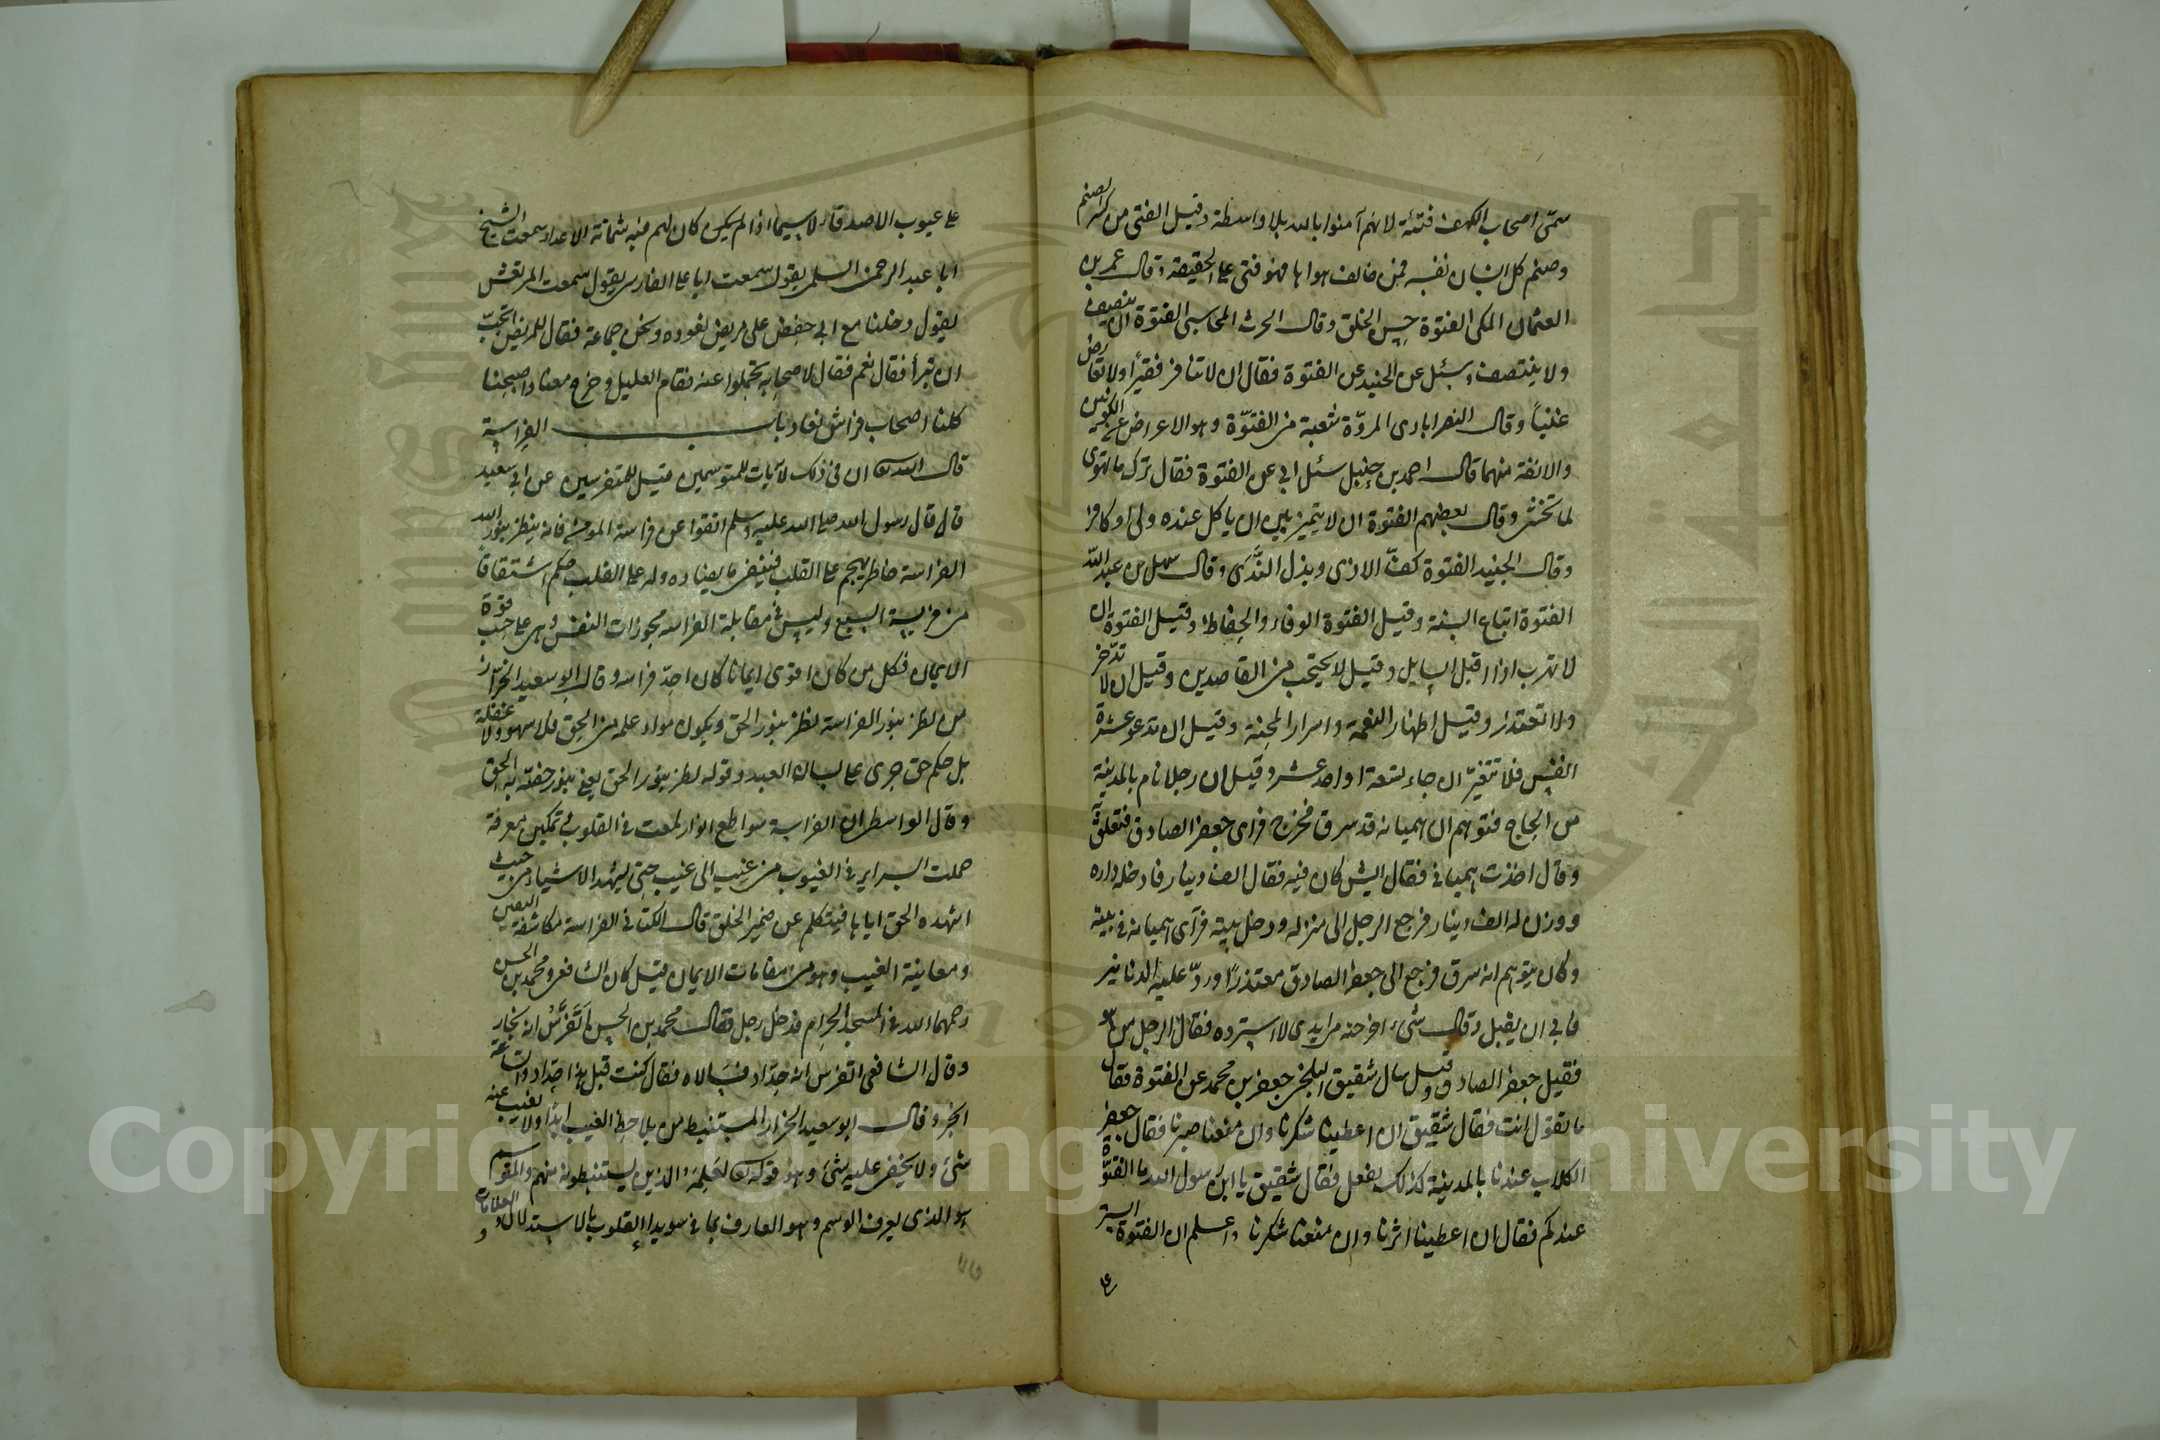 سمّى اصحاب الكهف فتئة لانهم آمنوا بالله بلا واسطة وقيل الفتى من كسر الصنم
وصنم كل انسان نفسه فمن خالف هواها فهو فتى على الحقيقة وقال عمر بن
العثمان المكى الفتوة حسن الخلق وقال الحرث المحاسبى الفتوة ان ينصف
ولا ينتصف وسئل عن الجنيد عن الفتوة فقال ان لا تنافر فقيرًا ولا تعارض
غنيًا وقال النصرابادى المروّة شعبة من الفتوّة وهو الاعراض عن الكونين
والانفة منهما قال احمد بن حنبل سئل ابى عن الفتوة فقال ترك ما تهوى
لما تخشى وقال بعضهم الفتوة ان لا يتميز بين ان ياكل عنده ولى او كافر
وقال الجنيد الفتوة كفّ الاذى وبذل النَّدَى وقال سهل بن عبد الله
الفتوة اتباع السنة وقيل الفتوة الوفاء والحفاظ وقيل الفتوة ان
لا تهرب اذا اقبل السايل وقيل لا يحتجب من القاصدين وقيل ان لا تدّخر
ولا تعتذر وقيل اظهار النعمة واسرار المحنة وقيل ان تدعو عشرة
انفس فلا تتغيّر ان جاء تسعة او احد عشر وقيل ان رجلا نام بالمدينة
من الحاج فتوهم ان هميانه قد سرق فخرج فراى جعفر الصادق فتعلق به
وقال اخذت هميانى فقال ايش كان فيه فقال الف دينار فادخله داره
ووزن له الف دينار فرجع الرجل الى منزله ودخل بيته فرآى هميانه فى بيته
وكان يتوهم انه سرق فرجع الى جعفر الصادق معتذرًا وردّ عليه الدنانير
فابى ان يقبل وقال شىء اخرجته من يدى لا استرده فقال الرجل من هو
فقيل جعفر الصادق وقيل سال شقيق البلخى جعفر بن محمد عن الفتوة فقال
ما تقول انت فقال شقيق ان اعطينا شكرنا وان منعنا صبرنا فقال جعفر
الكلاب عندنا بالمدينة كذلك يفعل فقال شقيق يا ابن رسول الله ما الفتوّة
عندكم فقال ان اعطينا اثرنا وان منعنا شكرنا واعلم ان الفتوة الستر
على عيوب الاصدقاء لا سيما اذا لم يكن كان لهم فيه شماتة الاعداء سمعت الشيخ
ابا عبد الرحمن السلمى يقول سمعت ابا على الفارسى يقول سمعت المرتعش
يقول دخلنا مع ابى حفص على مريض نعوده ونحن جماعة فقال للمريض اتحبّ
ان تبرأ فقال نعم فقال لاصحابه تحملوا عنه فقام العليل وخرج معنا واصبحنا
كلنا اصحاب فراش نعاد باب الفراسة
قال الله تعالى ان فى ذلك لآيات للمتوسمين قيل للمتفرسين عن ابى سعيد
قال قال رسول الله صلى الله عليه وسلم اتقوا عن فراسة المومن فانه ينظر بنور الله
الفراسة خاطر يهجم على القلب فينفى ما يضاده وله على القلب حكم اشتقاقًا
من فريسة السبع وليس فى مقابلة الفراسه مجوزات النفس وهى على حسب قوة
الايمان فكل من كان اقوى ايمانا كان احدّ فراسه وقال ابو سعيد الخراز
من نظر بنور الفراسة نظر بنور الحق ويكون مواد علمه من الحق فلا سهو ولا غفلة
بل حكم حق جرى على لسان العبد وقوله نظر بنور الحق يعنى بنور خصّه به الحق
وقال الواسطى ان الفراسة سواطع انوار لمعت فى القلوب تمكين معرفة
حملت السراير فى الغيوب من غيب الى غيب حتى يشهد الاشياء من حيث
اشهده الحق اياها فيتكلم عن ضمير الخلق قال الكتانى الفراسة مكاشفة اليقين
ومعاينة الغيب وهو من مقامات الايمان قيل كان الشافعى ومحمد بن الحسن
رحمهما الله فى المسجد الحرام فدخل رجل فقال محمد بن الحسن اَتَفَرَّسُ انه نجار
وقال الشافعى اتفرس انه حدّاد فسالاه فقال كنت قبل هذا حدّاد والساعة
انجر وقال ابو سعيد الخراز المستنبط من يلاحظ الغيب ابدًا ولا يغيب عنه
شئ ولا يخفى عليه شئ وهو قوله تعالى لعلمه الذين يستنبطونه منهم والمتوسم
هو الذى يعرف الوسم وهو العارف بما فى سويداء القلوب بالاستدلال والعلامات و
Copyright © King Saud University